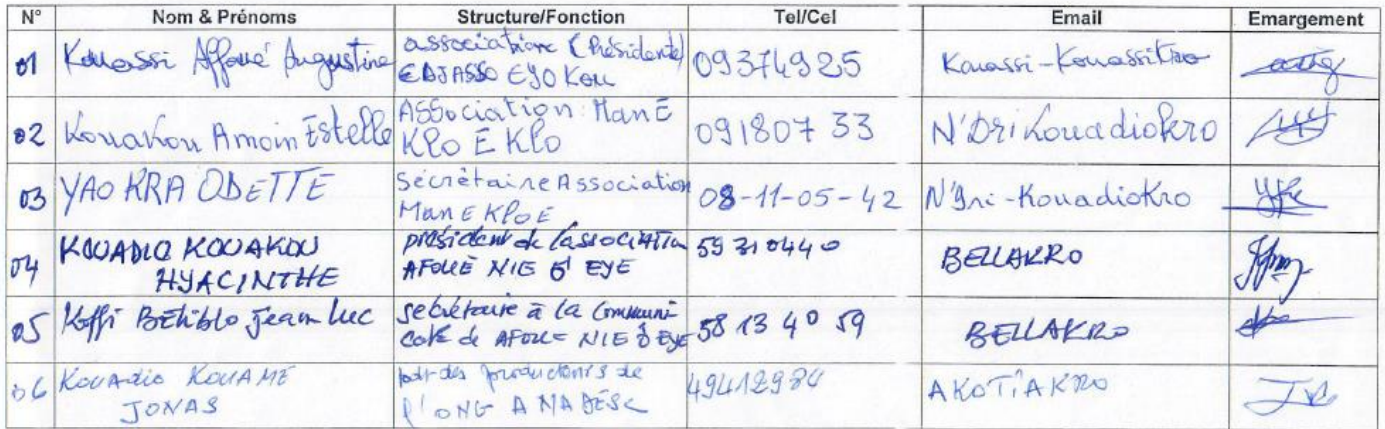 N° Nom & Prénoms Structure/Fonction Tel/Cel Email Emargement
01 Kouassi Affoué Augustine association (Présidente) EDJASSO EYO KOU 09374925 Kouassi-Kouassikro
02 Kouakou Amoin Estelle Association: Man E KPO E KPO 09180733 N'Dri Kouadiokro
03 YAO KRA ODETTE Sécrétaire Association Man E KPO E 08-11-05-42 N'Gri-Kouadiokro
04 KOUADIO KOUAKOU HYACINTHE président de l'association AFOUÉ NIE Ô EYE 59310440 BELLAKRO
05 Koffi Jean Luc secrétaire à la Communi- de AFOUE NIE Ô EYE 58 13 40 59 BELLAKRO
06 KOUADIO KOUAMÉ JONAS des producteurs de l'ONG 49412984 AKOTIAKRO